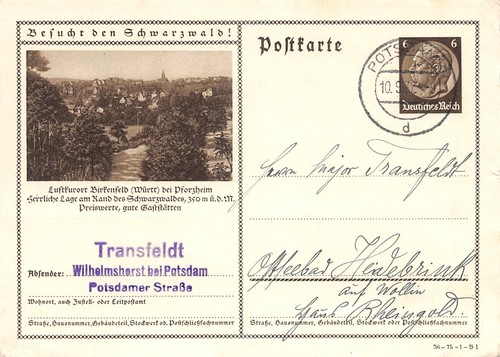 Besucht den Schwarzwald!
Luftkurort Birkenfeld (Württ) bei Pforzheim
Herrliche Lage am Rand des Schwarzwaldes, 350 m ü.d.M.
Preiswerte, gute Gaststätten
Transfeldt
Absender: Wilhelmshorst bei Potsdam
Potsdamer Straße
Wohnort, auch Zustell- oder Leitpostamt
Straße, Hausnummer, Gebäudeteil, Stockwerk od. Postschließfachnummer
Postkarte
6 6
Deutsches Reich
POTSDAM
10.9.
d
Herrn Major Transfeldt
Ostseebad Heidebrink
auf Wollin
Haus Rheingold
Straße, Hausnummer, Gebäudeteil, Stockwerk oder Postschließfachnummer
36-75-1-B1